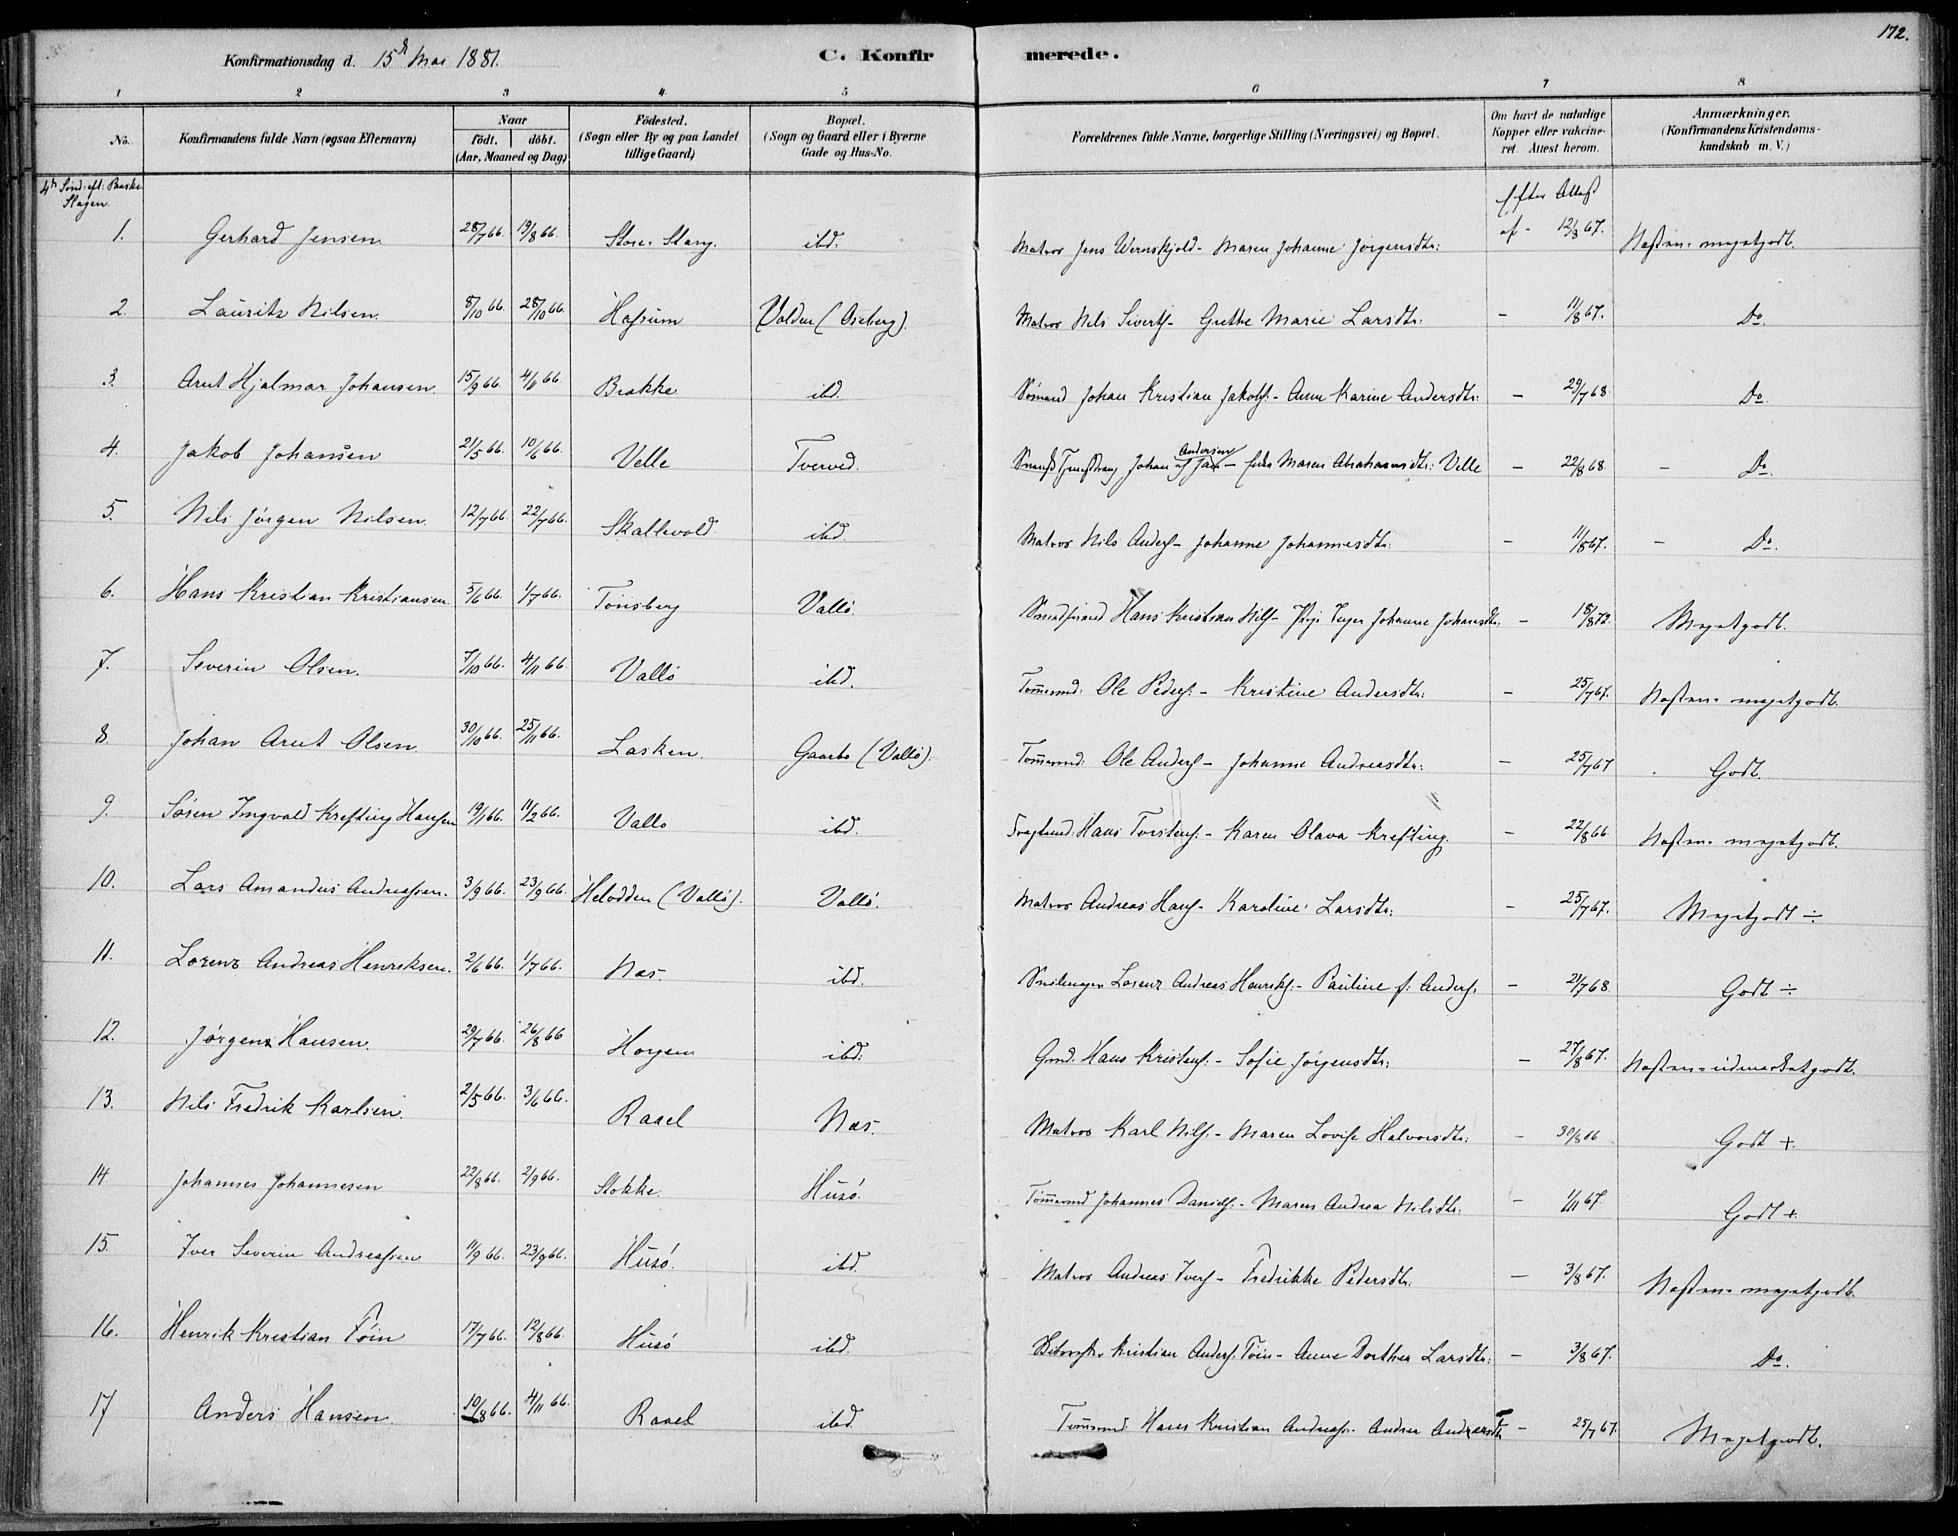 172.
Konfirmationsdag d. 15de Mai 1881. C. Konfirmerede.
1 2 3 4 5 6 7 8
No. Konfirmandens fulde Navn (ogsaa Efternavn) Naar født. døbt. (Aar, Maaned og Dag) Fødested. (Sogn eller By og paa Landet tillige Gaard) Bopæl. (Sogn og Gaard eller i Byerne Gade og Hus-No. Forældrenes fulde Navne, borgerlige Stilling (Næringsvei) og Bopæl. Om havt de naturlige Kopper eller vakcineret Attest herom. Anmærkninger. (Konfirmandens Kristendomskundskab m. V.)
4de Sønd: eft: Paaske Slagen.
Efter Attest
1. Gerhard Jensen 28/7 66. 19/8 66. Store-Stang. ibd. Matros Jens Wernskjold - Maren Johanne Jørgensdtr: af - 12/8 67. Næsten meget godt.
2. Lauritz Nilsen 8/10 66. 28/10 66. Hafsum Volden (Oseberg). Matros Nils Siverts - Grethe Marie Larsdtr: - 11/8 67. Do.
3. Arnt Hjalmar Johansen 15/9 66. 4/11 66. Brekke ibd. Sømand Johan Kristian Jakobs: - Anne Karine Andersdtr: - 29/7 68 Do.
4. Jakob Johansen 21/5 66. 10/6 66. Velle Tverved. Johan Andersen - Maren Abrahamsdtr: Velle - 22/8 68. - Do.
5. Nils Jørgen Nilsen 12/7 66. 22/7 66. Skallevold ibd. Matros Nils Anders - Johanne Johannesdtr: - 11/8 67. - Do.
6. Hans Kristian Kristiansen 5/6 66. 1/7 66. Tönsberg Vallö Hans Kristian Nils - Inger Johanne Johansdtr. - 18/8 72. Meget godt.
7. Severin Olsen. 7/10 66. 4/11 66. Vallö ibd. Tømmermd: Ole Peders: - Kristine Andersdtr: - 25/7 67. Næsten meget godt.
8. Johan Arnt Olsen 30/10 66. 25/11 66. Lasken. Gaarbo (Vallö). Tømmermd: Ole Anders - Johanne Andreasdtr: - 25/7 67 Godt.
9. Søren Ingvald Krefting Hansen 19/1 66. 11/2 66. Vallo ibd. Hans Torstens: - Karen Olava Krefting. - 22/8 66 Næsten meget godt.
10. Lars Amandus Andreassen. 3/9 66. 23/9 66. Helodden (Vallö). Vallö. Matros Andreas Hans - Karoline Larsdtr: - 25/7 67. Meget godt ÷
11. Lorenz Andreas Henriksen. 2/6 66. 1/7 66. Næs ibd. Lorenz Andreas Henriks: - Pauline f: Anders. - 21/7 68 Godt ÷
12. Jørgen Hansen. 29/7 66. 26/8 66 Horgen ibd: Gmd. Hans Kristens: - Sofie Jørgensdtr: - 27/8 67. Næsten udmærket godt.
13. Nils Fredrik Karlsen. 2/5 66. 3/6 66. Raael Næs. Matros Karl Nils: - Maren Lovise Halvorsdtr: - 30/8 66 Godt +.
14 Johannes Johannesen 22/8 66. 2/9 66. Stokke. Husö. Tømmermd Johannes Daniels: - Maren Andrea Nilsdtr: - 1/11 67. Godt +
15. Iver Severin Andreassen 11/9 66. 23/9 66. Husö. ibd. Matros Andreas Ivers - Fredrikke Pedersdtr. - 3/8 67. Næsten meget godt.
16. Henrik Kristian Föin 17/7 66. 12/8 66. Husö ibd. Kristian Anders. Föin - Anne Dorthea Larsdtr: - 3/8 67. Do.
17 Anders Hansen. 10/8 66. 4/11 66. Raael ibd. Tømmermd Hans Kristian Andreass: - Andrea Andersdtr - 25/7 67. Meget godt.